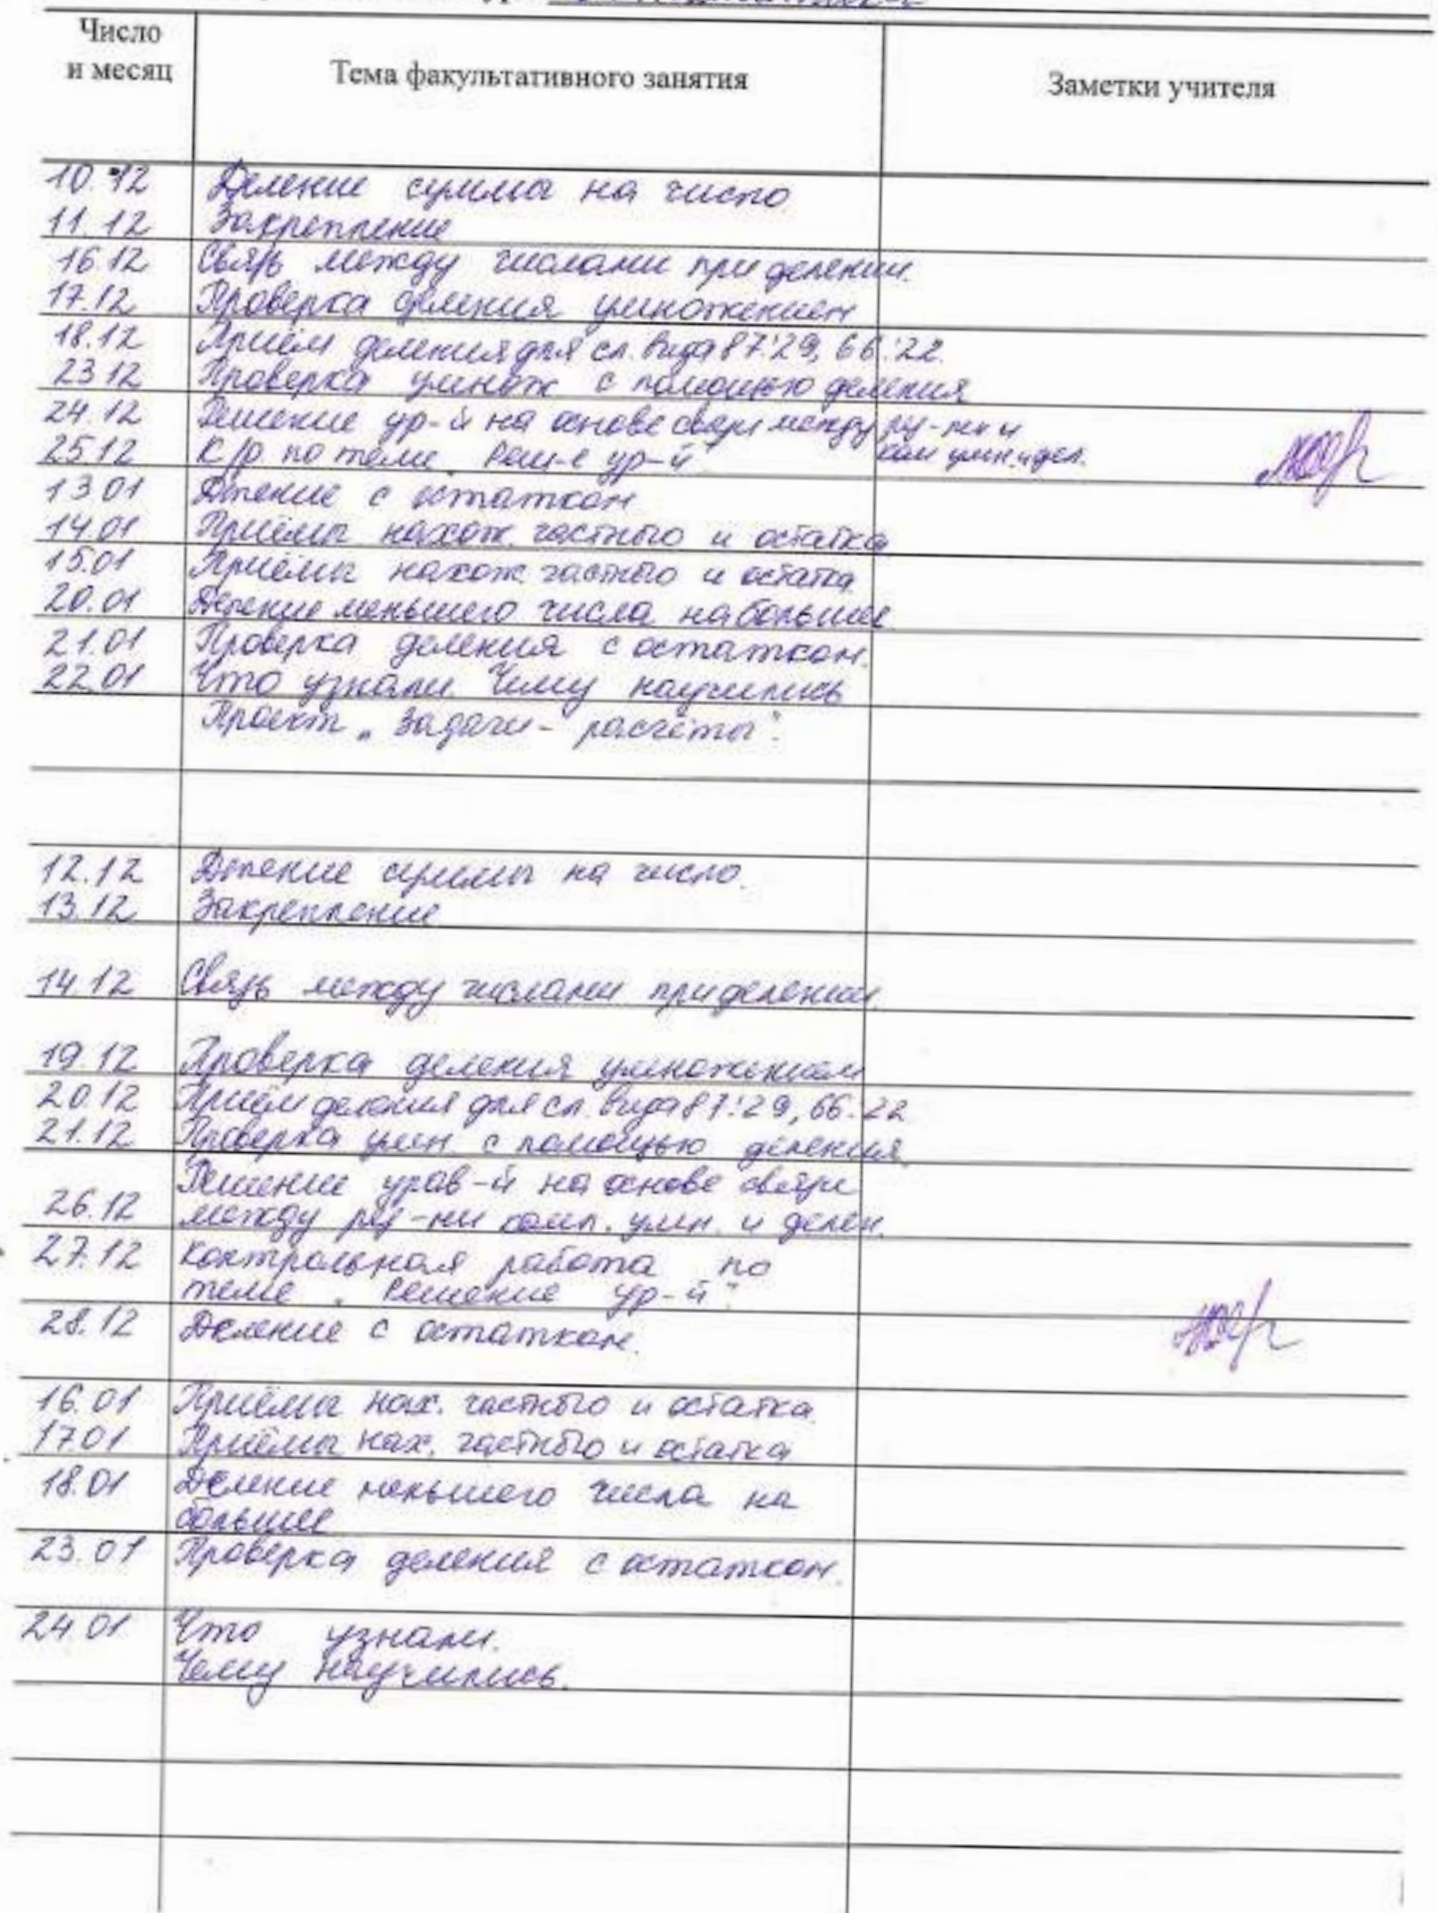 Число
и месяц
Тема факультативного занятия
Заметки учителя
10.12 Деление суммы на число
11.12 Закрепление
16.12 Связь между числами при делении.
17.12 Проверка деления умножением
18.12 Приём деления для сл. вида 87:29, 66:22.
23 12 Проверка умнож с помощью деления
24.12 Решение ур-й на основе связи между ру-ми и
ком умн. и дел.
25.12 К/р по теме „Реш-е ур-й"
13 01 Деление с остатком
14.01 Приёмы нахож. частного и остатка
15.01 Приёмы нахож частного и остатка
20.01 Деление меньшего числа на большее
21.01 Проверка деления с остатком.
22.01 Что узнали. Чему научились
Проект „Задачи - расчёты".
12.12 Деление суммы на число.
13.12 Закрепление
14.12 Связь между числами при делении.
19.12 Проверка деления умножением
20.12 Приём деления для сл. вида 87:29, 66:22
21.12 Проверка умн. с помощью деления.
Решение урав-й на основе связи
26.12 между ру-ми комп. умн. и делен.
27.12 Контрольная работа по
теме „Решение ур-й".
28.12 Деление с остатком.
16.01 Приёмы нах. частного и остатка
17.01 Приёмы нах. частного и остатка
18.01 Деление меньшего числа на
большее
23.01 Проверка деления с остатком.
24.01 Что узнали.
Чему научились.